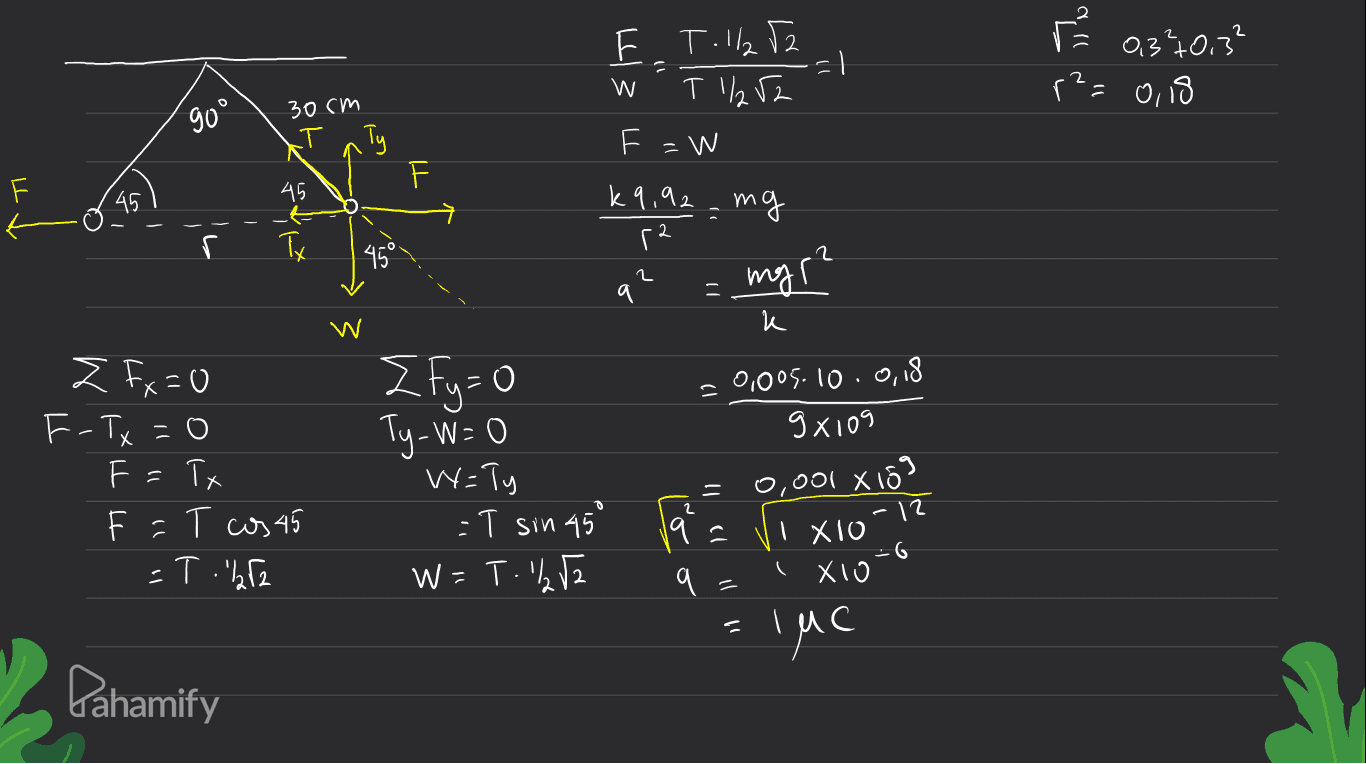 90°
30 cm
T
Ty
F
F
45
45
r
Tx
45°
W
Σ Fx = 0
F - Tx = 0
F = Tx
F = T cos 45
= T . 1/2 √2
Σ Fy = 0
Ty - W = 0
W = Ty
= T sin 45°
W = T . 1/2 √2
F/W = T . 1/2 √2 / T 1/2 √2 = 1
F = W
k q1 q2 / r² = mg
q² = mg r² / k
= 0,005 . 10 . 0,18 / 9 x 10⁹
= 0,001 x 10⁻⁹
√q² = √1 x 10⁻¹²
q = 1 x 10⁻⁶
= 1 μC
r² = 0,3² + 0,3²
r² = 0,18
Pahamify